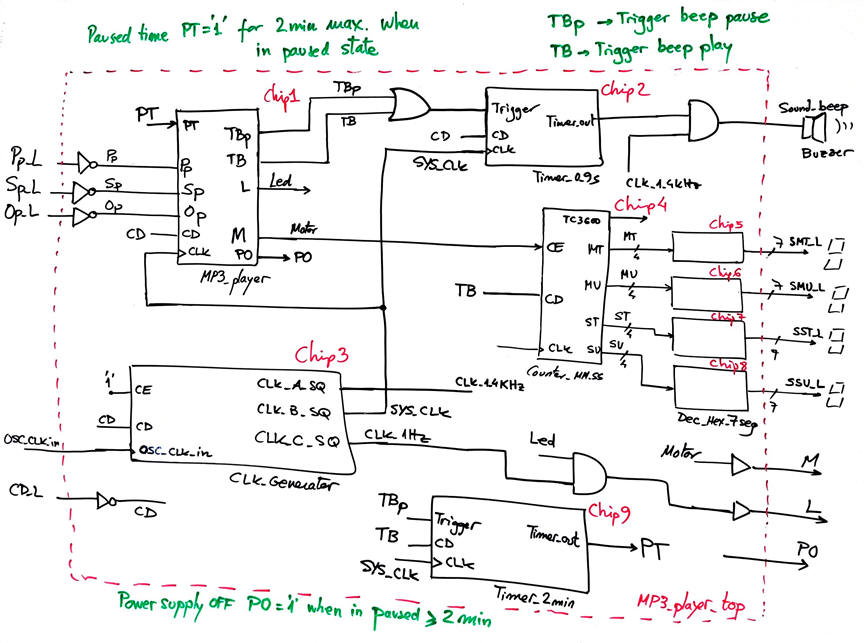 Paused time PT='1' for 2min max. when
in paused state
TBp → Trigger beep pause
TB → Trigger beep play
Chip1
TBp
TB
PT
PT
TBp
TB
L
Led
M
Motor
PO
PO
Pp_L
Pp
Pp
Sp_L
Sp
Sp
Op_L
Op
Op
CD
CD
CLK
MP3_player
Chip2
Trigger
Timer_out
CD
CD
CLK
SYS_CLK
Timer_0.9s
CLK_1.4KHz
Sound_beep
Buzzer
Chip4
TC3600
CE
MT
MT
4
MU
MU
4
TB
CD
ST
ST
4
SU
SU
4
CLK
Counter_MM.SS
Chip5
7
SMT_L
Chip6
7
SMU_L
Chip7
7
SST_L
Chip8
7
SSU_L
Dec_Hex_7seg
Chip3
'1'
CE
CLK_A_SQ
CLK_1.4KHz
CD
CD
CLK_B_SQ
SYS_CLK
OSC_CLK_in
OSC_CLK_in
CLK_C_SQ
CLK_1Hz
CLK_Generator
CD_L
CD
Led
Motor
M
L
PO
Chip9
TBp
Trigger
Timer_out
PT
TB
CD
SYS_CLK
CLK
Timer_2min
MP3_player_top
Power supply OFF PO='1' when in paused ≥ 2min